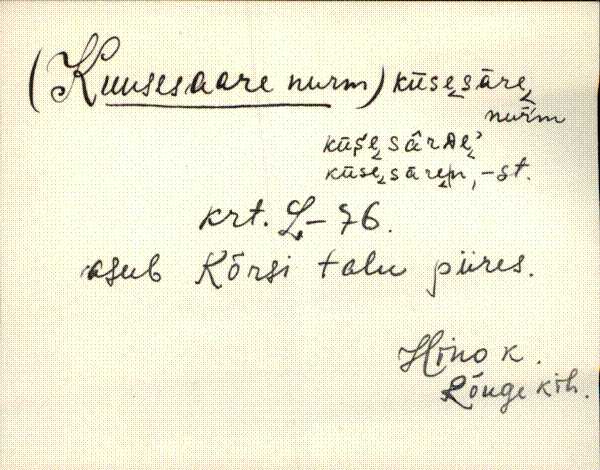 (Kuusesaare nurm) kūsęsārę
nur̄m
kūśęsârᴅę̀
kūsęsāręn, -st.
krt. L-76.
asub Kõrsi talu piires.
Hino k.
Rõuge kih.